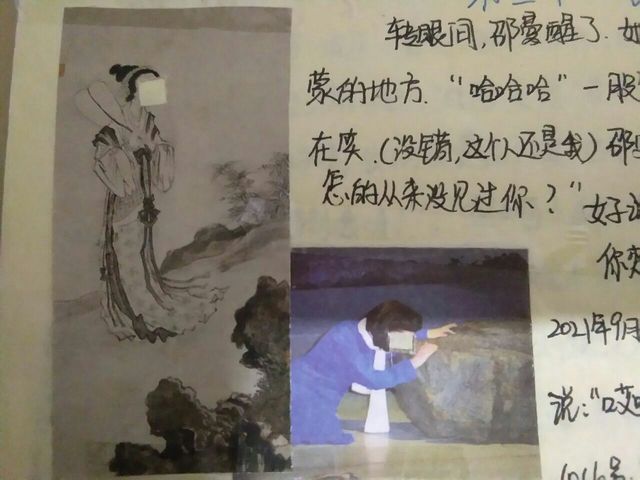 转眼间,邵曼醒了.她
蒙的地方.“哈哈哈”一股
在笑.(没错,这个人还是我)邵
怎的从来没见过你?”
好说
你
2021年9月
说:“哎